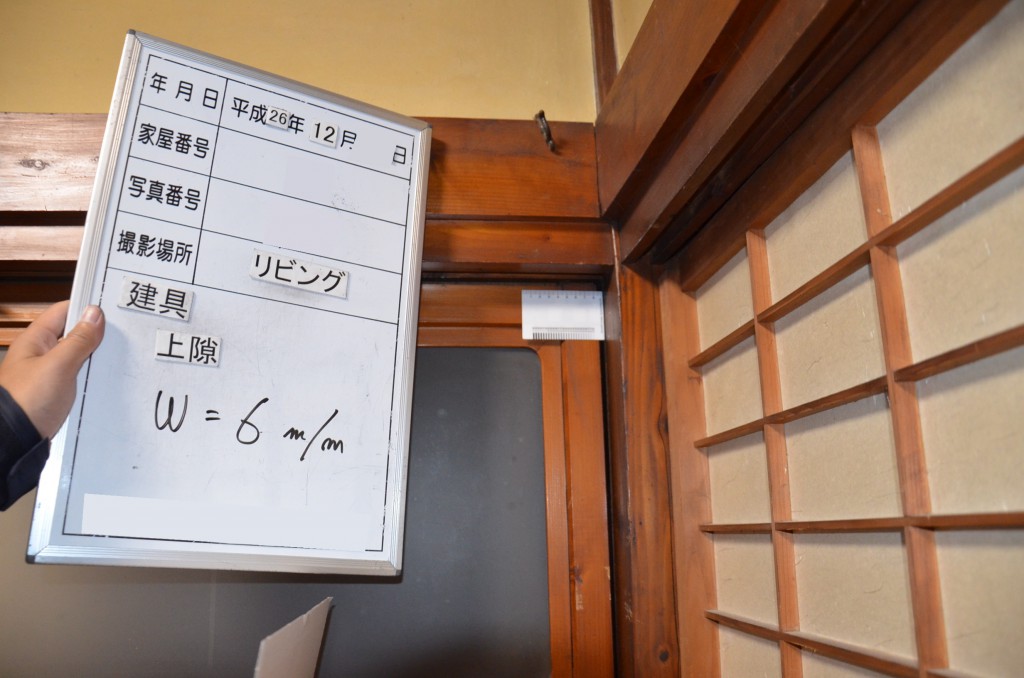 年月日 平成26年 12月 日
家屋番号
写真番号
撮影場所 リビング
建具
上隙
W = 6 m/m